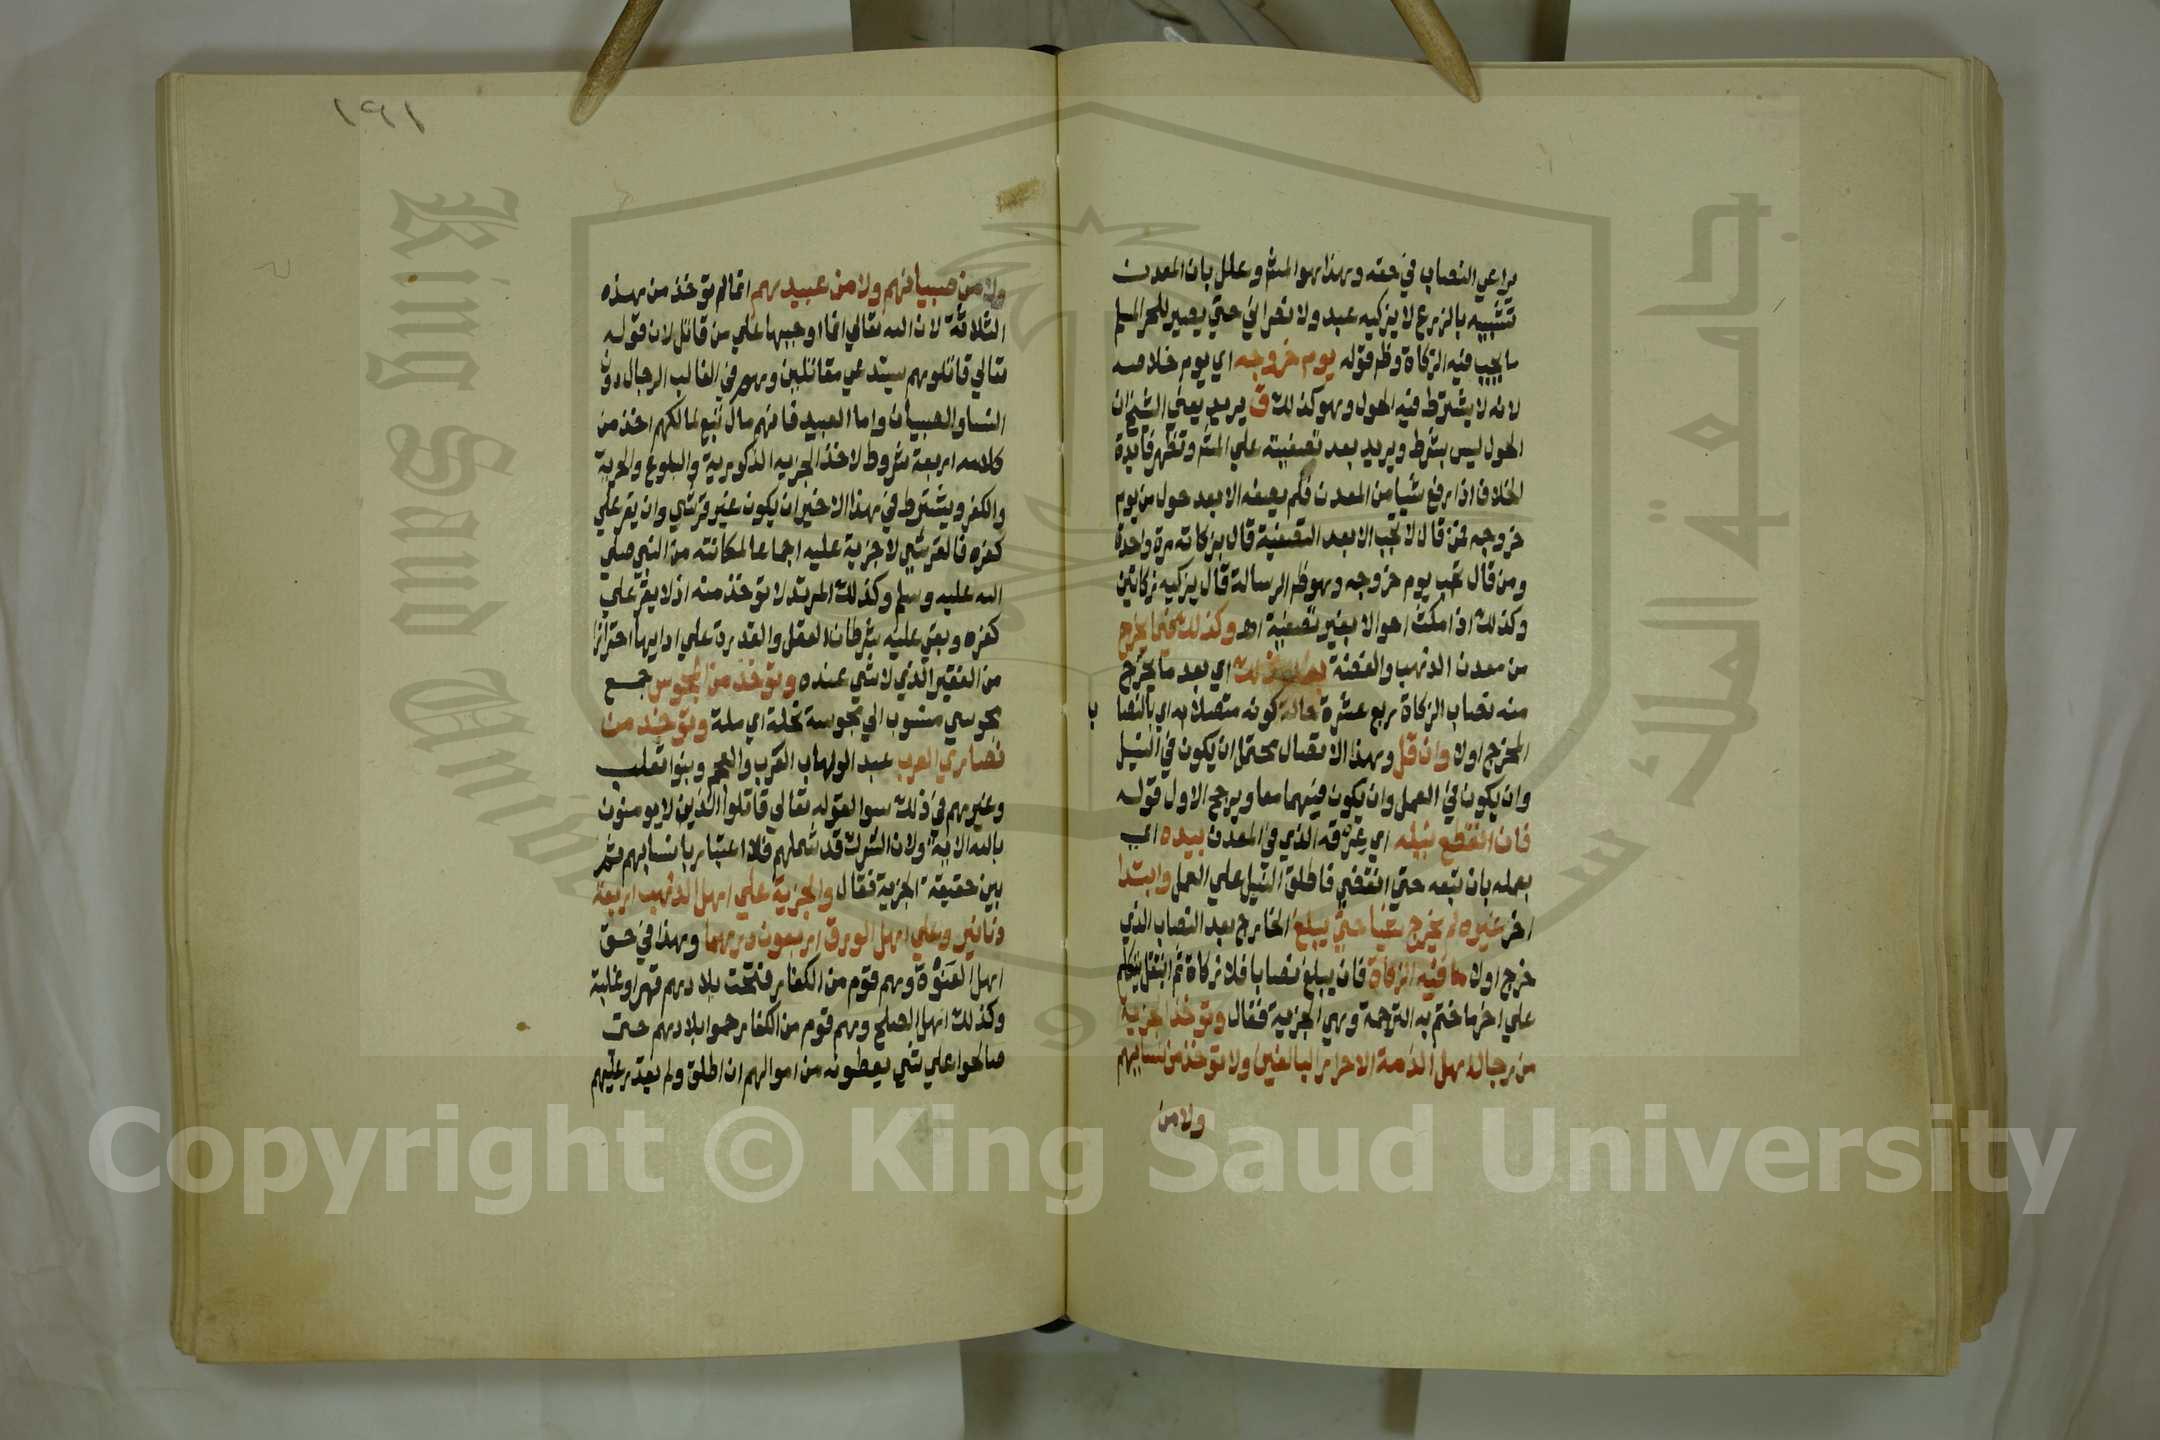 يراعي النصاب في حقه وهذا هو المشهـ وعلل بان المعدن
تشبيه بالزرع لا يزكيه عبد ولا نصراني حتي يصير للحر المسلم
ما يجب فيه الزكاة وظهـ قوله يوم خروجه اي يوم خلاصه
لانه لا يشترط فيه الحول وهو كذلك ق يريد يعني الشيخ ان
الحول ليس بشرط ويريد بعد تصفيته علي المشهـ وتظهر فايدة
الخلاف اذا رفع شيا من المعدن فلم يصفه الا بعد حول من يوم
خروجه فمن قال لا تجب الا بعد التصفية قال يزكاته مرة واحدة
ومن قال تجب يوم خروجه وهو ظهـ الرسالة قال يزكيه زكاتين
وكذلك اذا مكث احوالا بغير تصفية اهـ وكذلك فيما يخرج
من معدن الذهب والفضة بعد ذلك اي بعد ما يخرج
منه نصاب الزكاة ربع عشره حالة كونه متصلا به اي بالنصا
ب
المخرج اولا وان قل وهذا الاتصال يحتمل ان يكون في النيل
وان يكون في العمل وان يكون فيهما معا ويرجح الاول قوله
فان انقطع نيله اي عرقه الذي في المعدن بيده اي
بعمله بان تبعه حتي انقضي فاطلق النيل علي العمل وابتدا
اخر غيره لم يخرج شيا حتي يبلغ الخارج بعد النصاب الذي
خرج اولا ما فيه الزكاة فان يبلغ نصابا فلا زكاة ثم انتقل يتكلم
علي اخر ما ختم به الترجمة وهي الجزية فقال وتوخذ الجزية
من رجال اهل الذمة الاحرار البالغين ولا توخذ من نسايهم
ولا من
١٩١
ولا من صبيانهم ولا من عبيدهم انما لم توخذ من هذه
الثلاثة لان الله تعالي انما اوجبها علي من قاتل لان قوله
تعالي قاتلوهم يستدعي مقاتلين وهو في الغالب الرجال دون
النسا والصبيان واما العبيد فانهم مال تبع لمالكهم اخذ من
كلامه اربعة شروط لاخذ الجزيه الذكورية والبلوغ والحرية
والكفر ويشترط في هذا الاخير ان يكون غير قرشي وان يقر علي
كفره فالقرشي لا جزية عليه اجماعا لمكانته من النبي صلي
الله عليه وسلم وكذلك المرتد لا توخذ منه اذ لا يقر علي
كفره وبقي عليه شرطان العقل والقدرة علي ادايها احترازا
من الفقير الذي لا شي عنده وتوخذ من المجوس جمع
مجوسي منسوب الي مجوسة نحلة اي ملة وتوخذ من
نصاري العرب عبد الوهاب العرب والعجم وبنوا تغلب
وغيرهم في ذلك سوا لقوله تعالي قاتلوا الذين لا يومنون
بالله الاية ولان الشرك قد شملهم فلا اعتبار بانسابهم ثم
بين حقيقة الجزية فقال والجزية علي اهل الذهب اربعة
دنانير وعلي اهل الورق اربعون درهما وهذا في حق
اهل العنوة وهم قوم من الكفار فتحت بلادهم قهرا وغلبة
وكذلك اهل الصلح وهم قوم من الكفار حموا بلادهم حتي
صالحوا علي شي يعطونه من اموالهم ان اطلق ولم يقدر عليهم
King Saud University
جامعة الملك سعود
Copyright © King Saud University